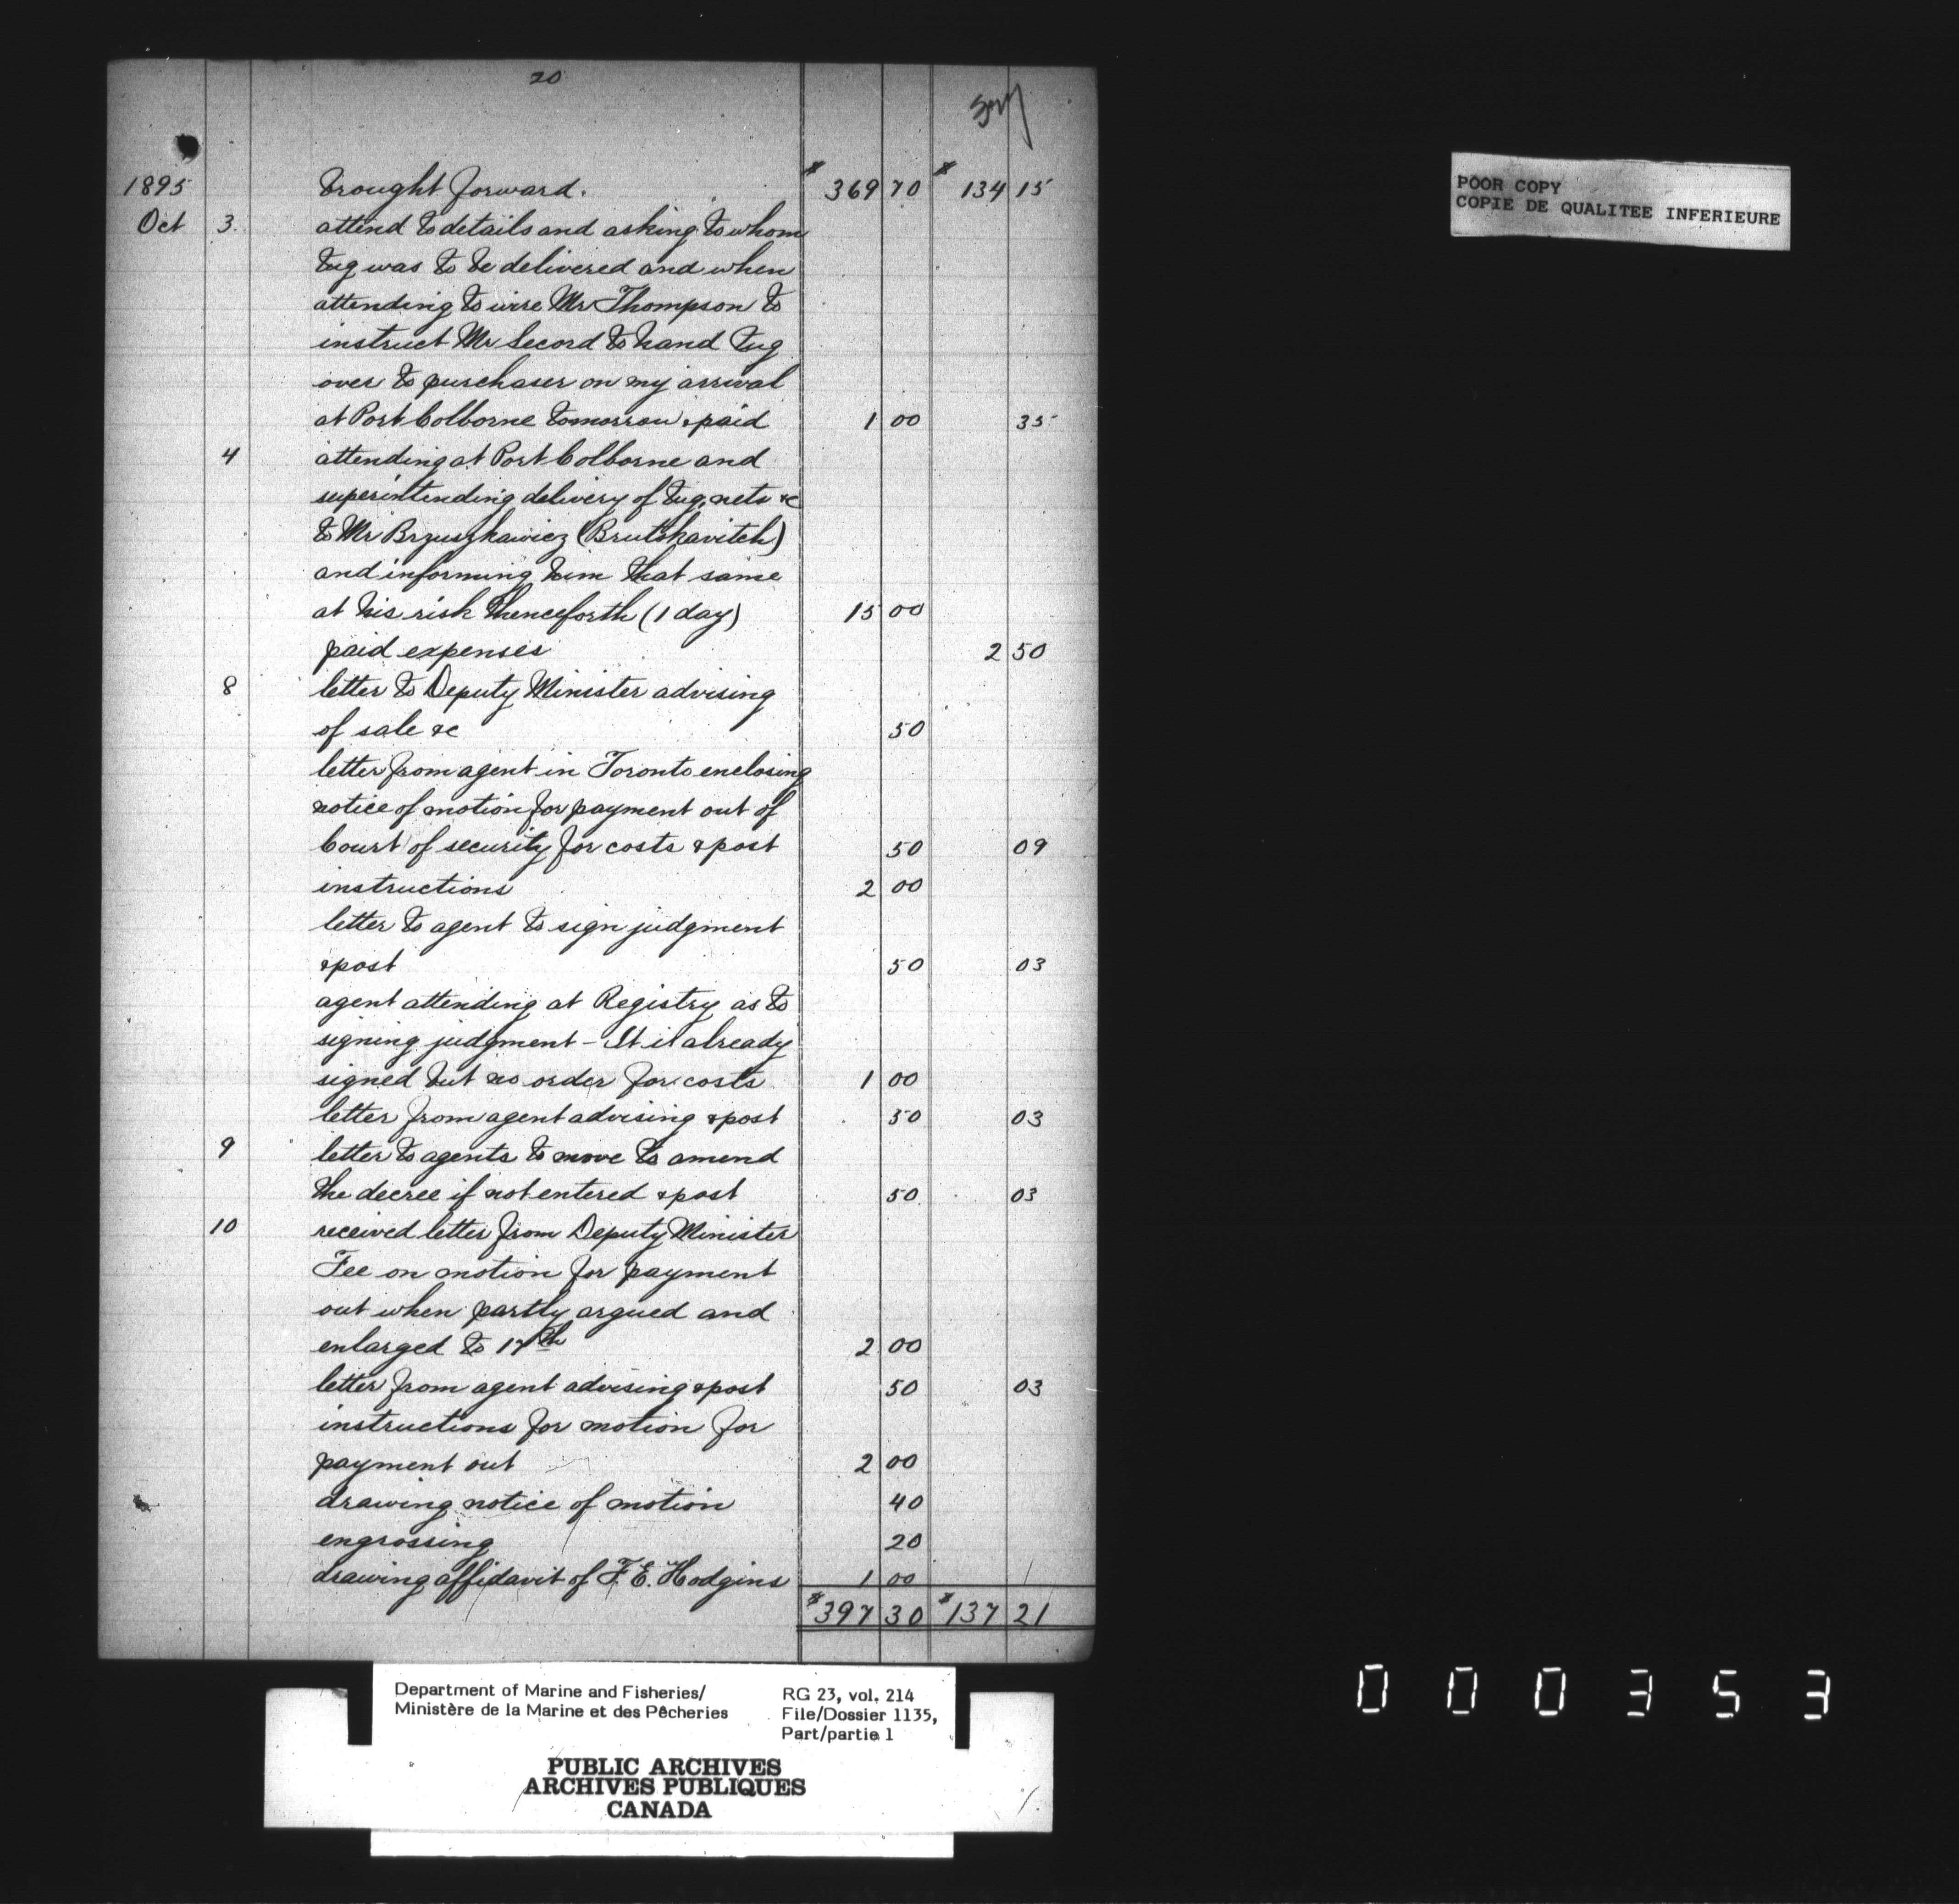 20
1895 brought forward. $ 369 70 $ 134 15
Oct 3. attend to details and asking to whom
tug was to be delivered and when
attending to wire Mr Thompson to
instruct Mr Secord to hand tug
over to purchaser on my arrival
at Port Colborne tomorrow & paid 1 00 35
4 attending at Port Colborne and
superintending delivery of tug, nets &c
to Mr Brzuszkawicz (Brutskavitch)
and informing him that same
at his risk thenceforth (1 day) 15 00
paid expenses 2 50
8 letter to Deputy Minister advising
of sale &c 50
letter from agent in Toronto enclosing
notice of motion for payment out of
Court of security for costs & post 50 09
instructions 2 00
letter to agent to sign judgment
& post 50 03
agent attending at Registry as to
signing judgment - It is already
signed but no order for costs 1 00
letter from agent advising & post 50 03
9 letter to agents to move to amend
the decree if not entered & post 50 03
10 received letter from Deputy Minister
Fee on motion for payment
out when partly argued and
enlarged to 17th 2 00
letter from agent advising & post 50 03
instructions for motion for
payment out 2 00
drawing notice of motion 40
engrossing 20
drawing affidavit of F. E. Hodgins 1 00
$397 30 $137 21
POOR COPY
COPIE DE QUALITEE INFERIEURE
Department of Marine and Fisheries/
Ministère de la Marine et des Pêcheries
RG 23, vol. 214
File/Dossier 1135,
Part/partie 1
PUBLIC ARCHIVES
ARCHIVES PUBLIQUES
CANADA
000353